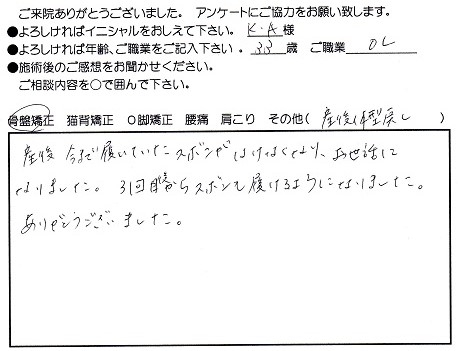 ご来院ありがとうございました。 アンケートにご協力をお願い致します。
●よろしければイニシャルをおしえて下さい。 K・A 様
●よろしければ年齢、ご職業をご記入下さい 。 33 歳 ご職業 OL
●施術後のご感想をお聞かせください。
ご相談内容を○で囲んで下さい。
骨盤矯正 猫背矯正 O脚矯正 腰痛 肩こり その他( 産後体型戻し )
産後 今まで履いていたズボンがはけなくなり、お世話に
なりました。 3回目からズボンも履けるようになりました。
ありがとうございました。